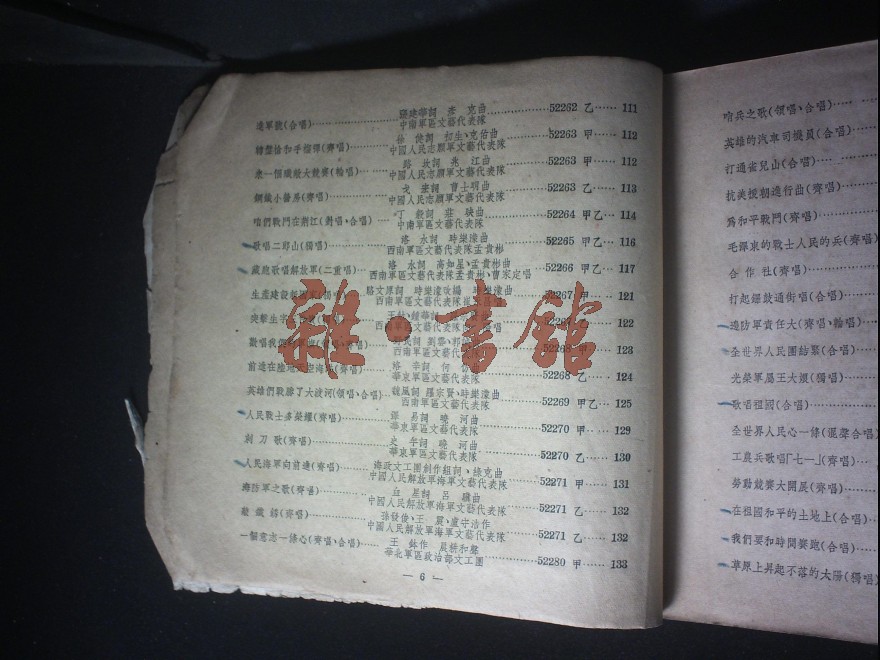 進軍號(合唱) 張建華詞 彥克曲 52262 乙 111
中南軍區文藝代表隊
轉盤槍和手榴彈(齊唱) 52263 甲 112
中國人民志願軍文藝代表隊
來一個殲敵大競賽(輪唱) 52263 甲 112
中國人民志願軍文藝代表隊
鋼鐵小醫房(齊唱) 曹士明曲 52263 乙 113
中國人民志願軍文藝代表隊
咱們戰鬥在荊江(對唱、合唱) 丁毅詞 莊映曲 52264 甲乙 114
中南軍區文藝代表隊
歌唱二郎山(獨唱) 洛水詞 時樂濛曲 52265 甲乙 116
西南軍區文藝代表隊孟貴彬
藏胞歌唱解放軍(二重唱) 洛水詞 高如星、孟貴彬曲 52266 甲乙 117
西南軍區文藝代表隊孟貴彬、曹家定唱
生產建設 時樂濛改編 時樂濛曲 52267 甲 121
西南軍區文藝代表隊
突擊生字 122
歡唱我 123
西南軍區文藝代表隊
前進在 52268 乙 124
華東軍區文藝代表隊
英雄們戰勝了大渡河(領唱、合唱) 魏風詞 羅宗賢、時樂濛曲 52269 甲乙 125
西南軍區文藝代表隊
人民戰士多榮耀(齊唱) 曉河曲 52270 甲 129
華東軍區文藝代表隊
刺刀歌(齊唱) 史年詞 曉河曲 52270 乙 130
華東軍區文藝代表隊
人民海軍向前進(齊唱) 海政文工團創作組詞、綠克曲 52271 甲 131
中國人民解放軍海軍文藝代表隊
海防軍之歌(齊唱) 呂驥曲 52271 乙 132
中國人民解放軍海軍文藝代表隊
(齊唱) 孫發俊、王震、盧守浩作 52271 乙 132
中國人民解放軍海軍文藝代表隊
一個意志一條心(齊唱、合唱) 王鉢作 晨耕和聲 52280 甲 133
華北軍區政治部文工團
— 6 —
雜·書館
哨兵之歌(領唱、合唱)
英雄的汽車司機員(合唱)
打通雀兒山(合唱)
抗美援朝進行曲(齊唱)
爲和平戰鬥(齊唱)
毛澤東的戰士人民的兵(齊唱)
合作社(齊唱)
打起鑼鼓通街唱(合唱)
邊防軍責任大(齊唱、輪唱)
全世界人民團結緊(合唱)
光榮軍屬王大嬸(獨唱)
歌唱祖國(合唱)
全世界人民心一條(混聲合唱
工農兵歌唱「七一」(齊唱)
勞動競賽大開展(齊唱)
在祖國和平的土地上(合唱)
我們要和時間賽跑(合唱)
草原上昇起不落的太陽(獨唱